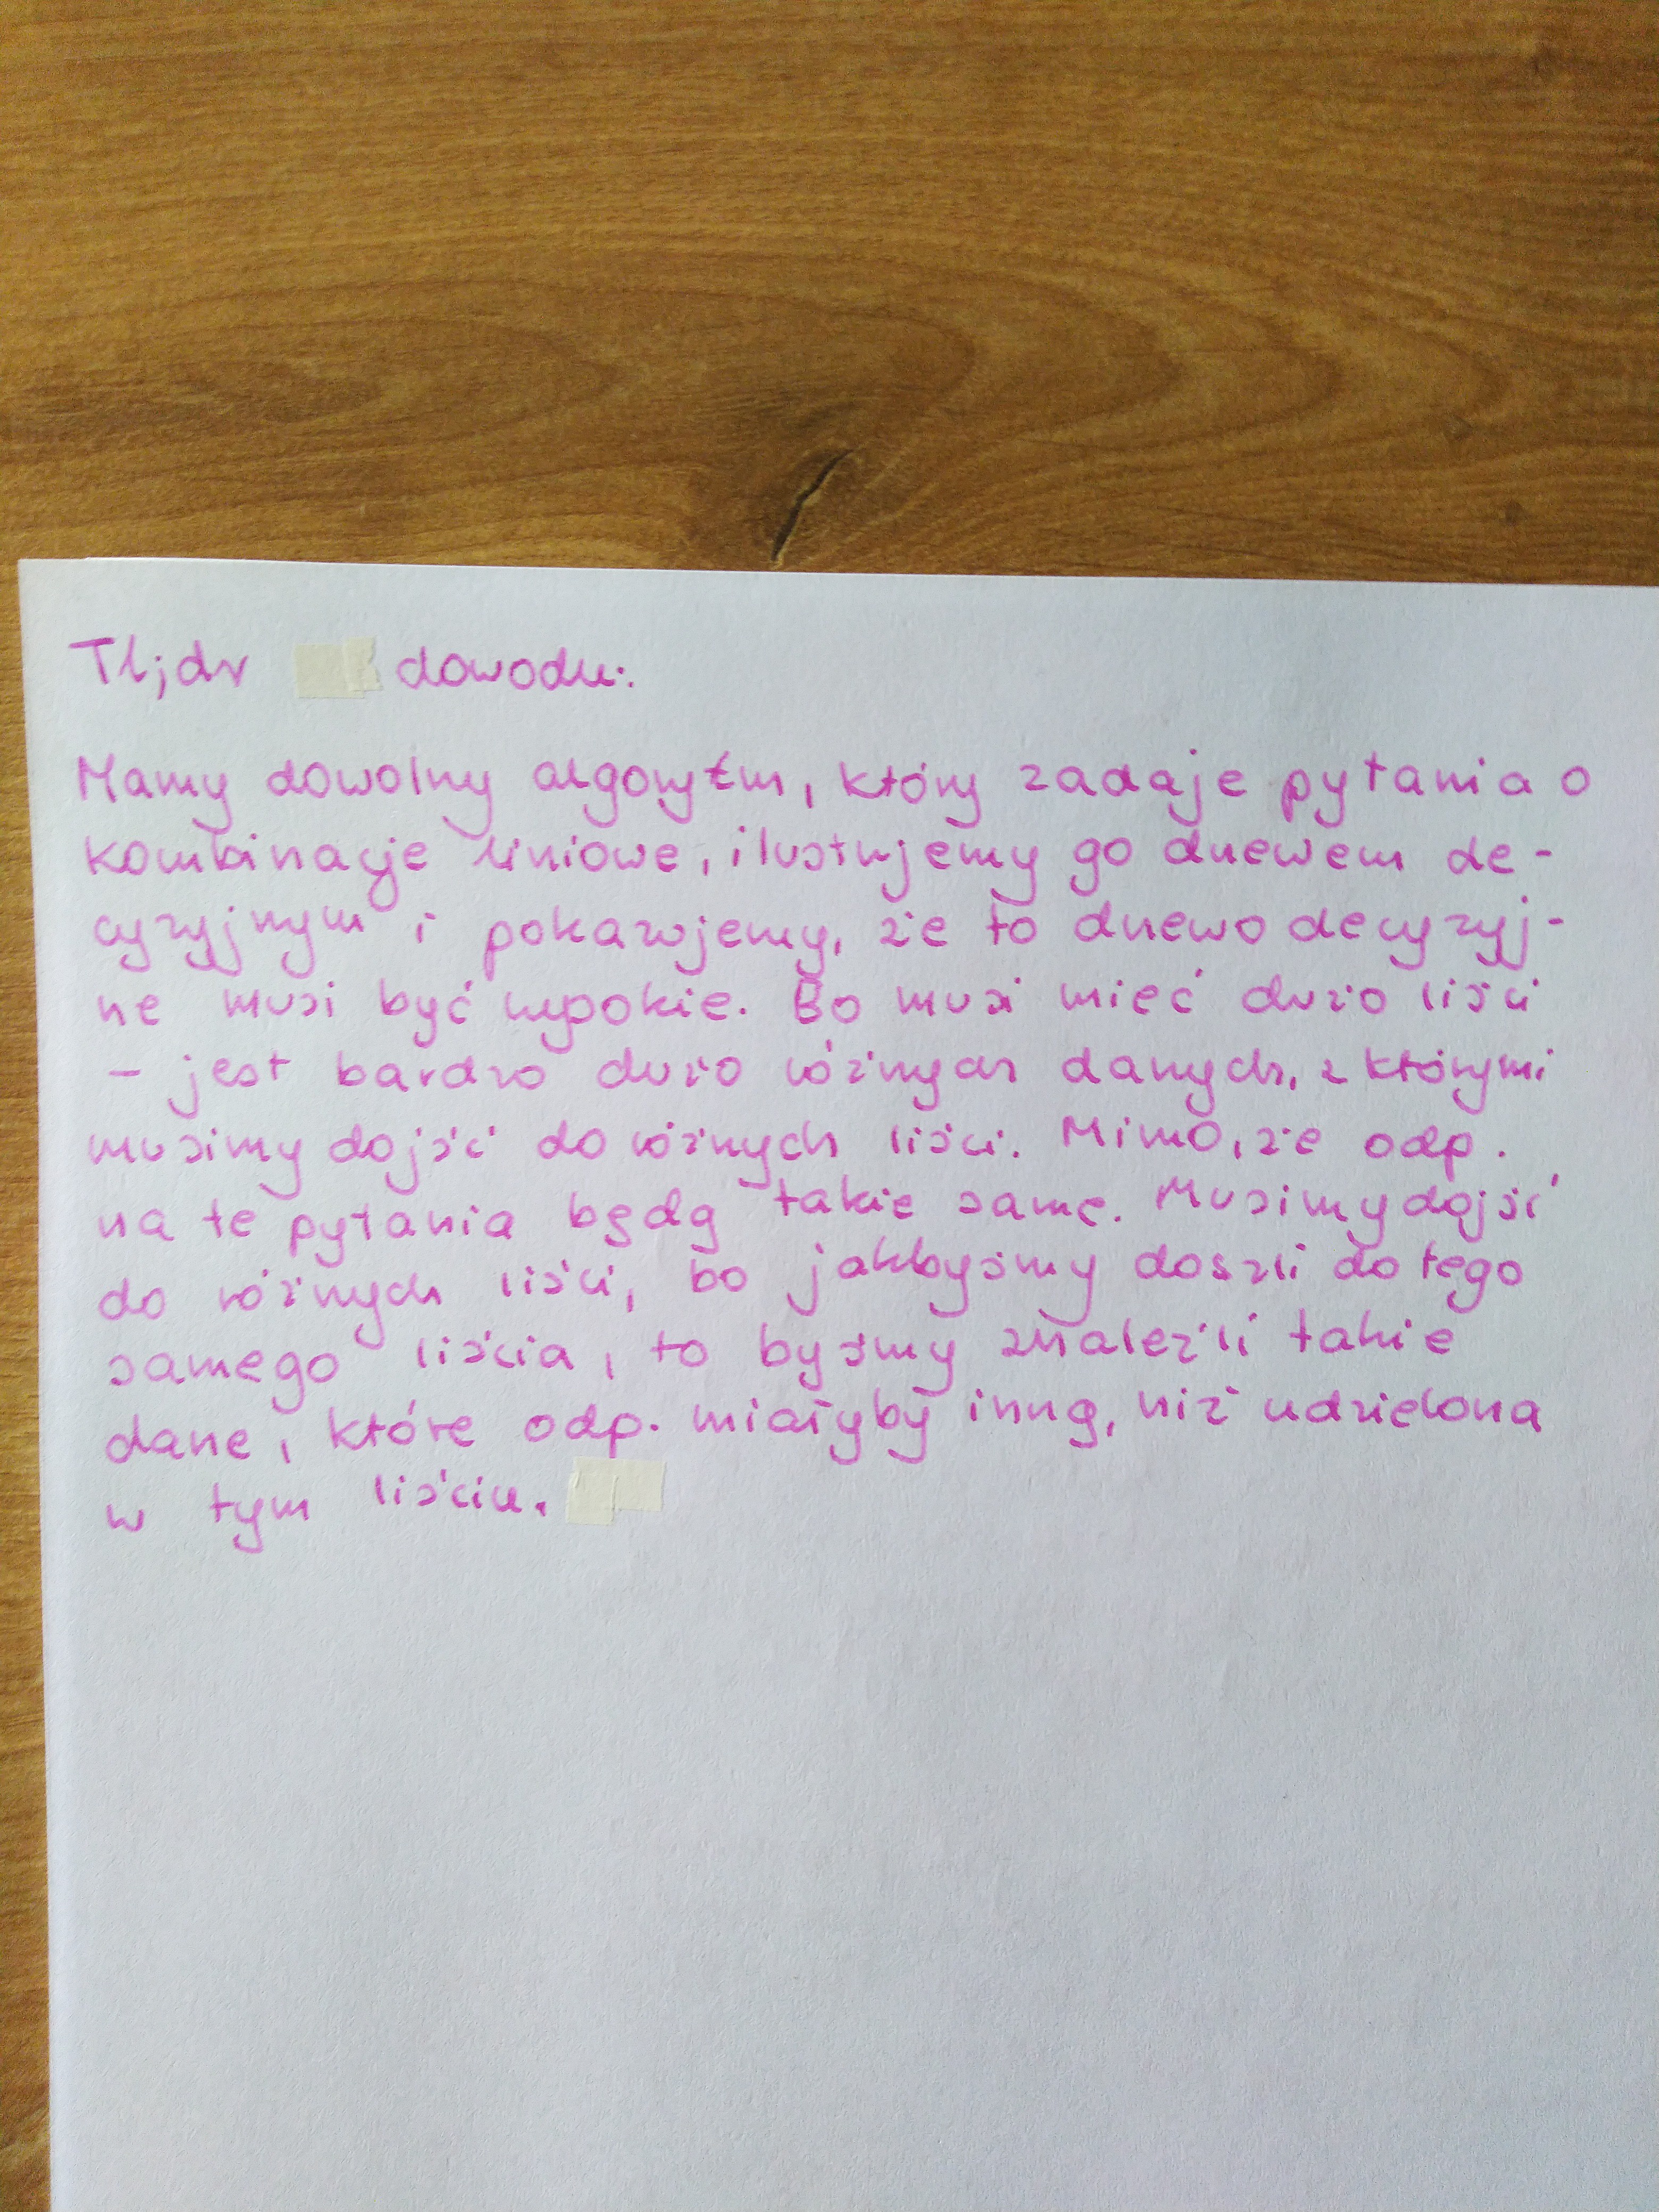 Tl;dr dowodu:
Mamy dowolny algorytm, który zadaje pytania o
kombinacje liniowe, ilustrujemy go drzewem de-
cyzyjnym i pokazujemy, że to drzewo decyzyj-
ne musi być wysokie. Bo musi mieć dużo liści
- jest bardzo dużo różnych danych, z którymi
musimy dojść do różnych liści. Mimo, że odp.
na te pytania będą takie same. Musimy dojść
do różnych liści, bo jakbyśmy doszli do tego
samego liścia, to byśmy znaleźli takie
dane, które odp. miałyby inną, niż udzielona
w tym liściu.